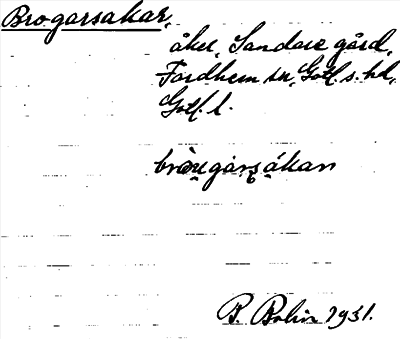 Brogarsakar,
åker, Sandarve gård,
Fardhem sn, Gotl. s. hd,
Gotl. l.
bròu̯garsákan
B. Bolin 1931.